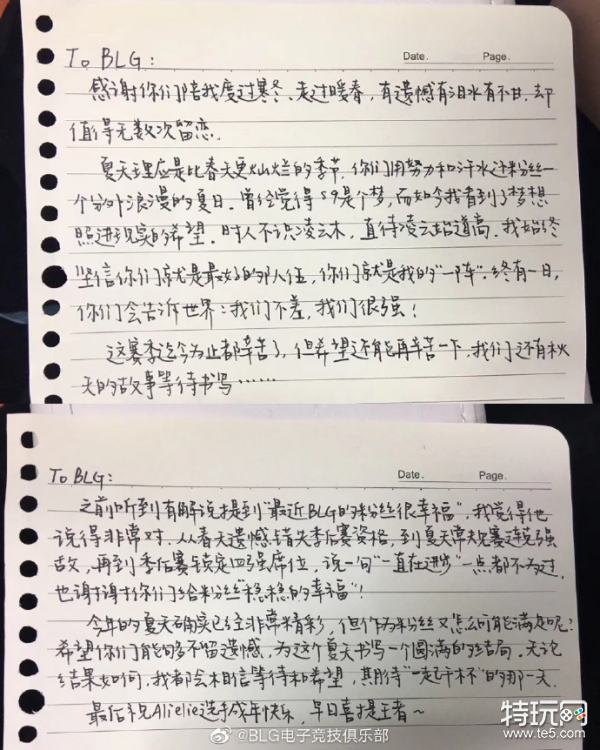 To BLG:
Date.
Page.
感谢你们陪我度过寒冬、走过暖春，有遗憾有泪水有不甘，却
值得无数次留恋.
夏天理应是比春天更灿烂的季节，你们用努力和汗水还粉丝一
个分外浪漫的夏日。曾经觉得S9是个梦，而如今我看到了梦想
照进现实的希望。时人不识凌云木，直待凌云始道高。我始终
坚信你们就是最好的那八位，你们就是我的"一阵"。终有一日，
你们会告诉世界：我们不差，我们很强！
这赛季迄今为止都辛苦了，但希望还能再辛苦一下，我们还有秋
天的故事等待书写……
To BLG:
Date.
Page.
之前听到有解说提到"最近BLG的粉丝很幸福"，我觉得他
说得非常对，从春天遗憾错失季后赛资格，到夏天常规赛连克强
敌，再到季后赛锁定四强席位，说一句"一直在进步"一点都不为过.
也谢谢你们给粉丝"稳稳的幸福"！
今年的夏天确实已经非常精彩，但作为粉丝又怎么可能满足呢？
希望你们能够不留遗憾，为这个夏天书写一个圆满的结局，无论
结果如何，我都会相信等待和希望，期待"一起干杯"的那一天.
最后祝Alielie选手成年快乐，早日喜提王者~
@BLG电子竞技俱乐部
特玩网
www.te5.com